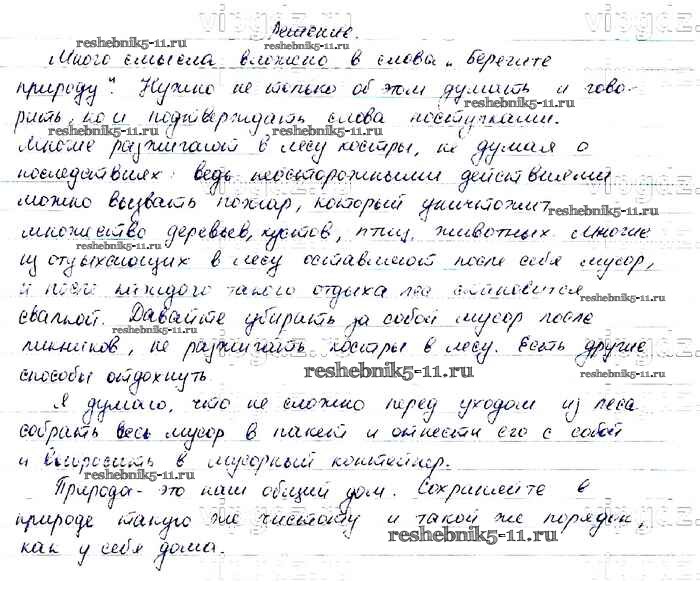 Решение.
Много смысла вложено в слова „Берегите
природу". Нужно не только об этом думать и гово-
рить, но и подтверждать слова поступками.
Многие разжигают в лесу костры, не думая о
последствиях: ведь неосторожными действиями
можно вызвать пожар, который уничтожит
множество деревьев, кустов, птиц, животных. Многие
из отдыхающих в лесу оставляют после себя мусор,
и после каждого такого отдыха лес становится
свалкой. Давайте убирать за собой мусор после
пикников, не разжигать костры в лесу. Есть другие
способы отдохнуть.
Я думаю, что не сложно перед уходом из леса
собрать весь мусор в пакет и отнести его с собой
и выбросить в мусорный контейнер.
Природа - это наш общий дом. Сохраняйте в
природе такую же чистоту и такой же порядок,
как у себя дома.
reshebnik5-11.ru
reshebnik5-11.ru
reshebnik5-11.ru
reshebnik5-11.ru
reshebnik5-11.ru
reshebnik5-11.ru
reshebnik5-11.ru
reshebnik5-11.ru
reshebnik5-11.ru
reshebnik5-11.ru
reshebnik5-11.ru
reshebnik5-11.ru